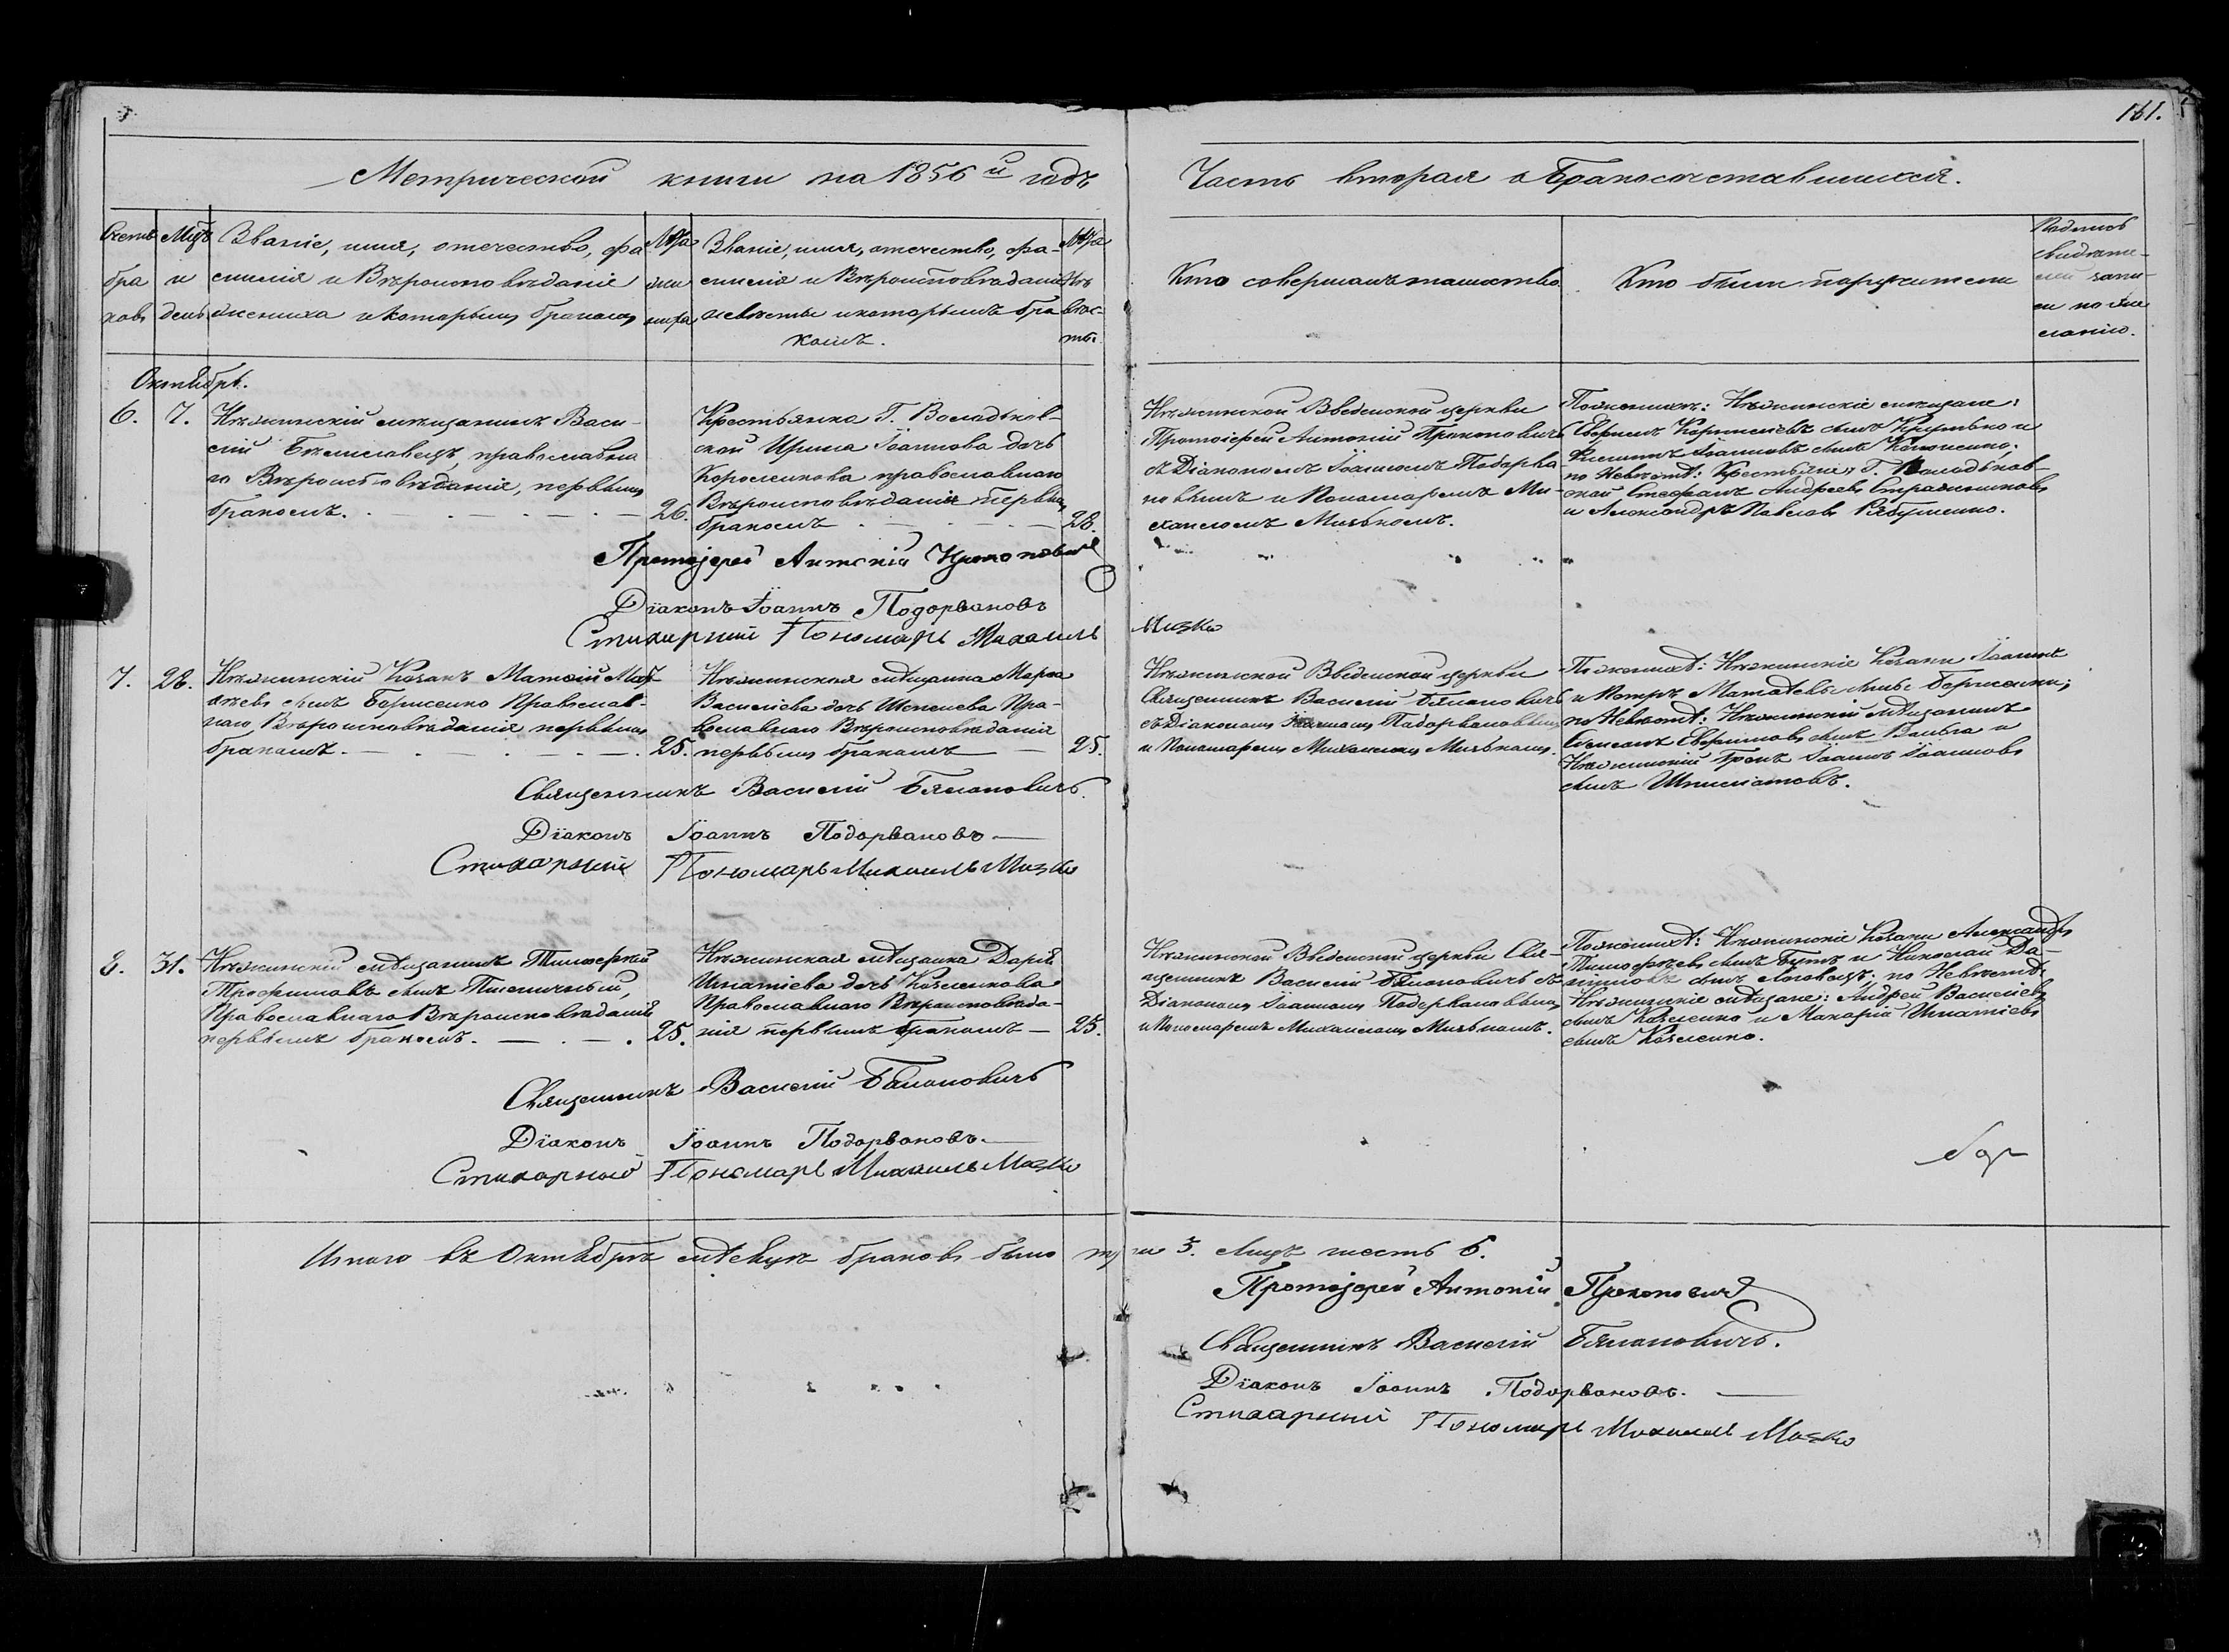 161.
Метрической книги на 1856й годъ
Часть вторая о бракосочетавшихся.
Счетъ бра ковъ
Мцъ и день
Званіе, имя, отечество, фа
милія и Вѣроисповѣданіе
жениха и которымъ бракомъ
Лѣта
жениха
Званіе, имя, отечество, фа-
милія и Вѣроисповѣданіе
невѣсты и которымъ бра
комъ.
Лѣта
Невѣс-
ты.
Кто совершалъ таинство
Кто были поручители
Подпись
свидѣте-
лей запи-
си по же
ланію.
Октябрь.
6. 7.
Нѣжинскій мѣщанинъ Васи-
лій православна
го Вѣроисповѣданія, первымъ
бракомъ. 26.
Крестьянка Г.
Ирина Іоаннова дочь
православнаго
Вѣроисповѣданія первымъ
бракомъ 28.
Нѣжинской Введенской церкви
Протоіерей Антоній Прокоповичъ
съ Діакономъ Іоанномъ Подорва
новымъ и Пономаремъ Ми-
хаиломъ Мизькомъ.
По женихѣ: Нѣжинскіе мѣщане:
Іоанновъ сынъ
по Невѣстѣ: Крестьяне Г.
Стефанъ Андреевъ
и Александръ Павловъ
Протоіерей Антоній Прокоповичъ
Діаконъ Іоаннъ Подорвановъ
Стихарный Пономарь Михаилъ Мизко
7. 28.
Нѣжинскій Козакъ Матѳій Мат
ѳѣевъ сынъ Борисенко Православ-
наго Вѣроисповѣданія первымъ
бракомъ. 25.
Нѣжинская мѣщанка Марѳа
Василіева дочь Пра-
вославнаго Вѣроисповѣданія
первымъ бракомъ 25.
Нѣжинской Введенской церкви
Священникъ Василій Бялановичъ
съ Діакономъ Іоанномъ Подорвановымъ
и Пономаремъ Михаиломъ Мизькомъ.
По женихѣ: Нѣжинскіе Козаки Іоаннъ
и Петръ Матѳѣевы сыны Борисенки;
по Невѣстѣ: Нѣжинскій мѣщанинъ
сынъ и
Нѣжинскій Грекъ Іоаннъ Іоанновъ
сынъ
Священникъ Василій Бялановичъ.
Діаконъ Іоаннъ Подорвановъ
Стихарный Пономарь Михаилъ Мизко
8. 31.
Нѣжинскій мѣщанинъ Тимоѳей
Трофимовъ сынъ
Православнаго Вѣроисповѣданія
первымъ бракомъ. 25.
Нѣжинская мѣщанка Дарія
Игнатіева дочь Козленкова
Православнаго Вѣроисповѣда-
нія первымъ бракомъ 23.
Нѣжинской Введенской церкви Свя-
щенникъ Василій Бялановичъ съ
Діакономъ Іоанномъ Подорвановымъ
и Пономаремъ Михаиломъ Мизькомъ.
По женихѣ: Нѣжинскіе Козаки Александръ
Тимофѣевъ сынъ Бутъ и Николай Да-
ниловъ сынъ по Невѣстѣ:
Нѣжинскіе мѣщане: Андрей Василіевъ
сынъ Козленко и Макарій Игнатіевъ
сынъ Козленко.
Священникъ Василій Бялановичъ
Діаконъ Іоаннъ Подорвановъ.
Стихарный Пономарь Михаилъ Мизко
Итого въ Октябрѣ мѣсяцѣ браковъ было три 3. лицъ шесть 6.
Протоіерей Антоній Прокоповичъ
Священникъ Василій Бялановичъ.
Діаконъ Іоаннъ Подорвановъ.
Стихарный Пономарь Михаилъ Мизко